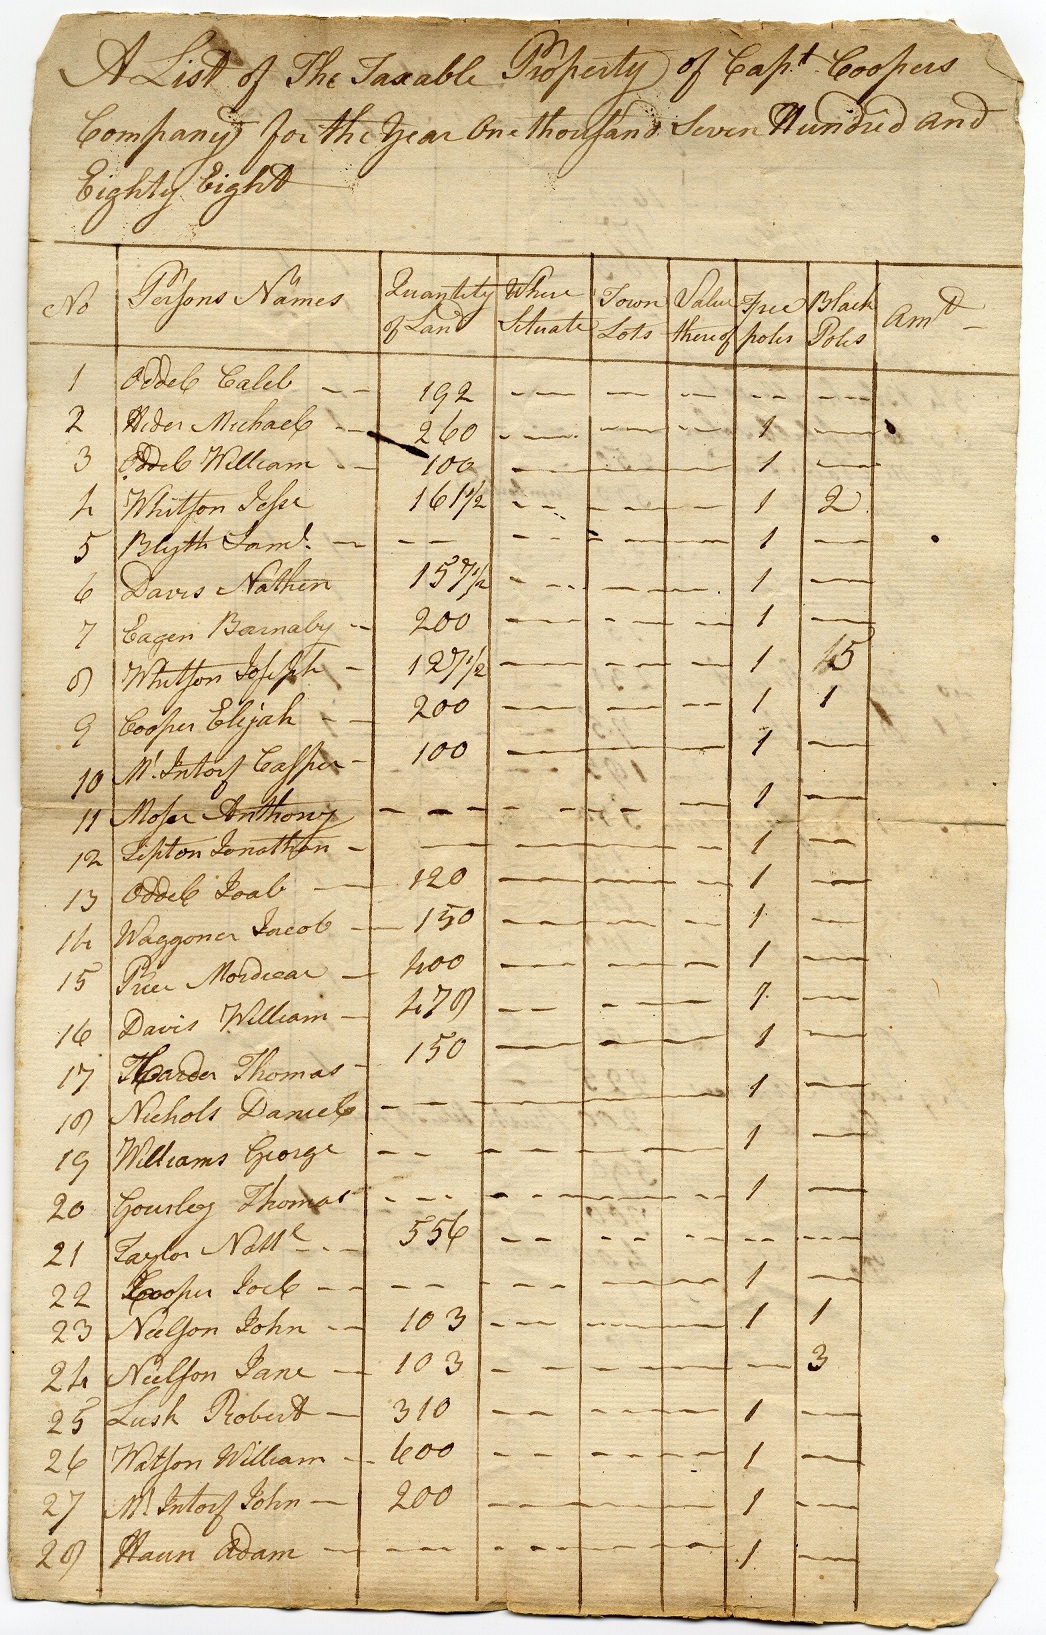 A List of The Taxable Property of Capt Coopers
Company for the Year One thousand Seven Hundred and
Eighty Eight
No Persons Names Quantity of Land Where Situate Town Lots Value thereof Free poles Black Poles Amt
1 Oddel Caleb 192
2 Hider Michael 260 1
3 Oddel William 100 1
4 Whitson Jesse 161 1/2 1 2
5 Blyth Saml 1
6 Davis Nathen 157 1/2 1
7 Eagen Barnaby 200 1
8 Whitson Joseph 127 1/2 1 5
9 Cooper Elijah 200 1 1
10 Mc Intorf Casper 100 1
11 Moser Anthony 1
12 Lipton Jonathan 1
13 Oddel Joab 120 1
14 Waggoner Jacob 150 1
15 Price Mordicai 400 1
16 Davis William 478 1
17 Harder Thomas 150 1
18 Nichols Daniel 1
19 Williams George 1
20 Gourley Thomas 1
21 Taylor Natte 556
22 Cooper Joel 1
23 Neelson John 103 1 1
24 Neelson Jane 103 3
25 Lusk Robert 310 1
26 Watson William 600 1
27 Mc Intorf John 200 1
28 Haun Adam 1